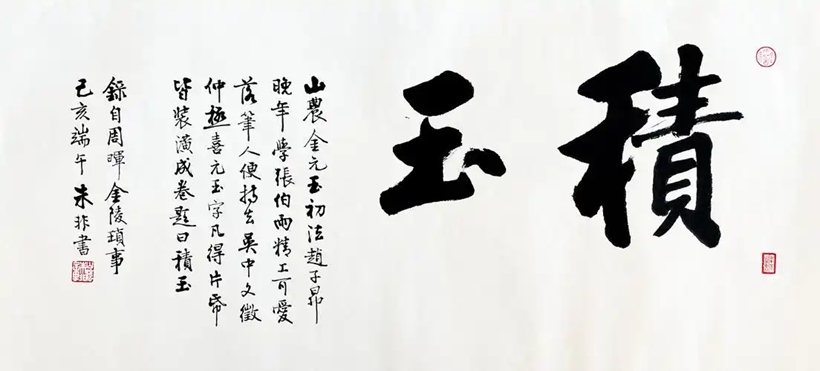 積玉
山農金元玉初法趙子昂
晚年學張伯雨精工可愛
落筆人便持去吳中文徵
仲極喜元玉字凡得片帋
皆裝潢成卷題曰積玉
錄自周暉金陵瑣事
己亥端午 朱非書